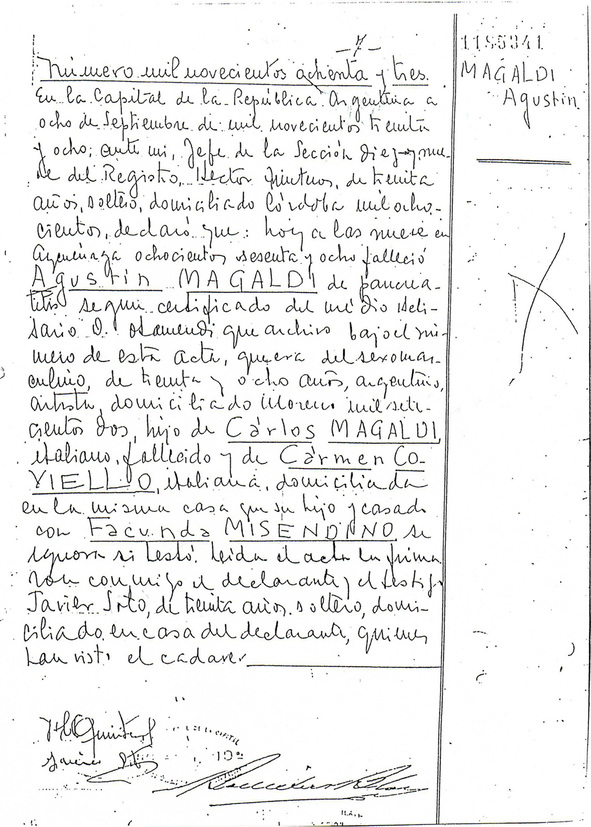 1195341
MAGALDI
Agustin
Número mil novecientos ochenta y tres.
En la Capital de la República Argentina a
ocho de Septiembre de mil novecientos treinta
y ocho; ante mi, Jefe de la Sección diez y nue-
ve del Registro, Hector Quinteros, de treinta
años, soltero, domiciliado Córdoba mil ocho-
cientos, declaró que: hoy a las nueve en
ochocientos sesenta y ocho falleció
Agustin MAGALDI de pancrea-
titis segun certificado del médico Beli-
sario O. Otamendi que archivo bajo el nú-
mero de esta acta, que era del sexo mas-
culino, de treinta y ocho años, argentino,
artista, domiciliado Moreno mil sete-
cientos dos, hijo de Cárlos MAGALDI,
italiano, fallecido y de Cármen CO-
VIELLO, italiana, domiciliada
en la misma casa que su hijo y casado
con Facunda MISENDINO se
ignora si testó. Leida el acta la firma-
ron conmigo el declarante y el testigo
Javier Soto, de treinta años, soltero, domi-
ciliado en casa del declarante, quienes
han visto el cadaver